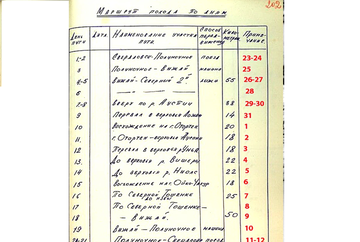 202
Маршрут похода по дням
День пути Дата Наименование участка пути Способ передвижения Километраж Примечание
1-2 Свердловск-Полуночное поезд 23-24
3 Полуночное - Вижай машина 25
4-5 Вижай - Северный 2й лыжи 55 26-27
6 — // — 28
7-8 вверх по р. Ауспии 38 29-30
9 Перевал в верховья Лозьвы 14 31
10 Восхождение на г. Отортен 20 1
11. г. Отортен - верховья Ауспии 18 2
12 Перевал в верховья р. Унья 18 3
13. До верховьев р. Вишеры 22 4
14 до верховьев р. Ниолс 22 5
15 Восхождение на Ойко-Чакур 18 6
16 По Северной Тошемке 25 7
17 По Северной Тошемке - 8
18 - Вижай. 50 9
19 Вижай - Полуночное машина 10
20-21 Полуночное - Свердловск поезд 11-12